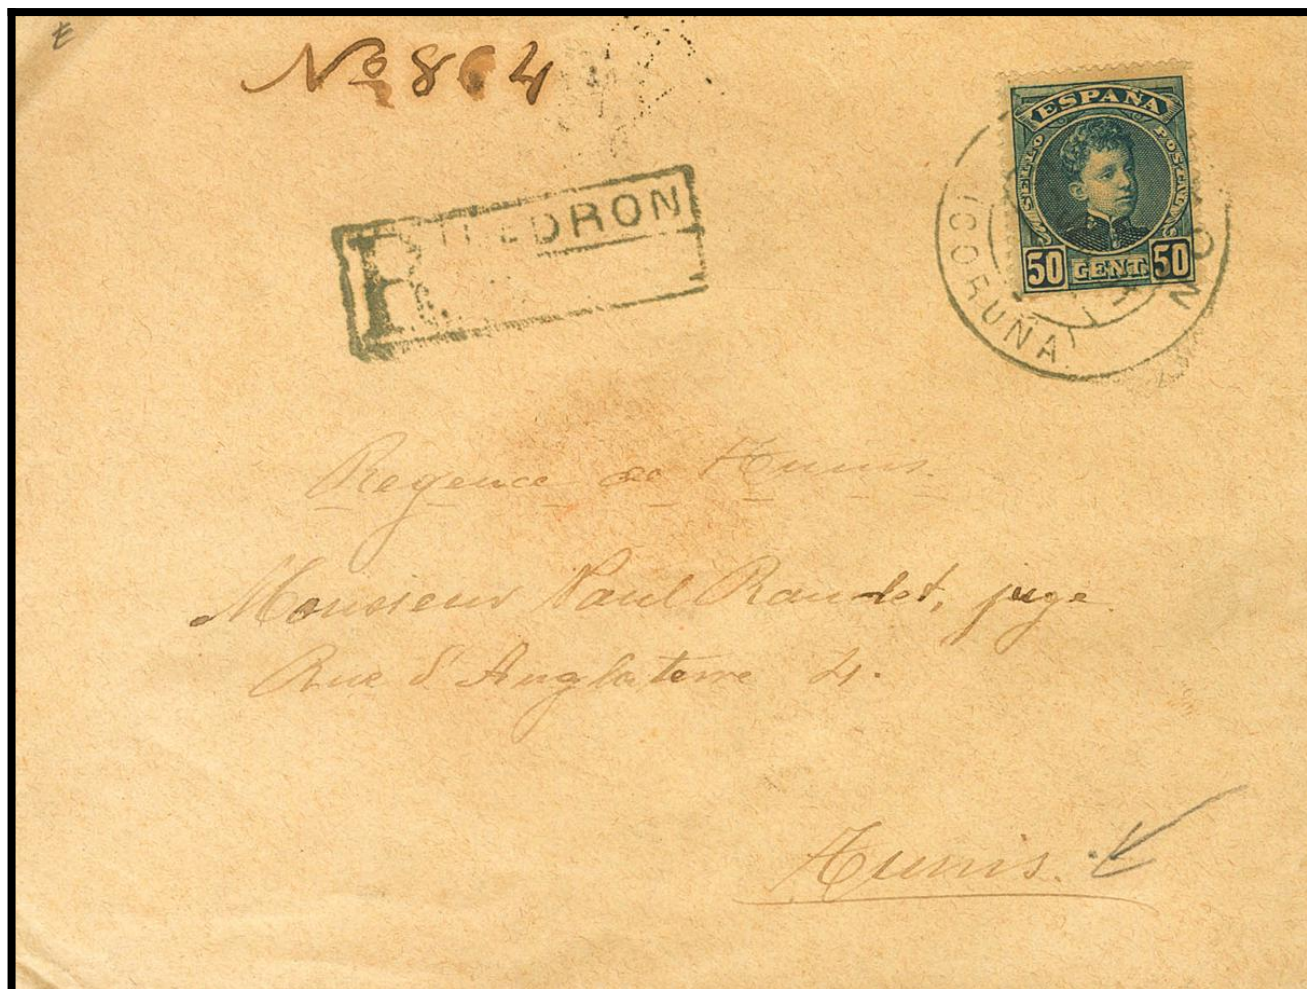 No 864
ESPAÑA
SELLO POSTAL
50 CENT. 50
R DRON
(CORUÑA)
Regence de Tunis.
Monsieur Paul juge.
Rue d'Angleterre 4.
Tunis.